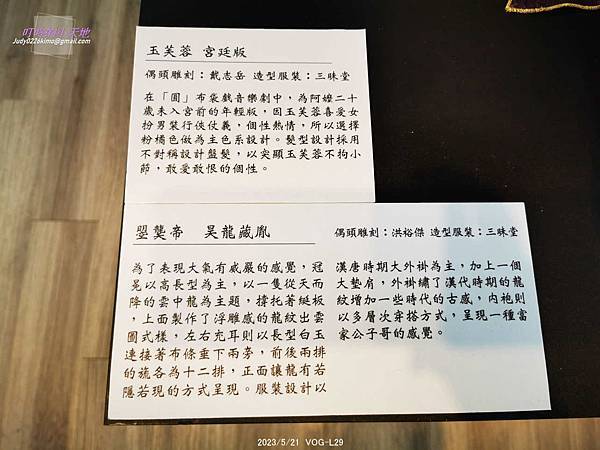 叮噹的小天地
Judy0226kimo@gmail.com
玉芙蓉 宮廷版
偶頭雕刻：戴志岳 造型服裝：三昧堂
在「圓」布袋戲音樂劇中，為阿嬤二十
歲未入宮前的年輕版，因玉芙蓉喜愛女
扮男裝行俠仗義，個性熱情，所以選擇
粉橘色做為主色系設計。髮型設計採用
不對稱設計盤髮，以突顯玉芙蓉不拘小
節，敢愛敢恨的個性。
曌龑帝 吴龍藏胤
偶頭雕刻：洪裕傑 造型服裝：三昧堂
為了表現大氣有威嚴的感覺，冠
冕以高長型為主，以一隻從天而
降的雲中龍為主題，撐托著綖板
，上面製作了浮雕感的龍紋出雲
圖式樣，左右充耳則以長型白玉
連接著布條垂下兩旁，前後兩排
的旒各為十二排，正面讓龍有若
隱若現的方式呈現。服裝設計以
漢唐時期大外掛為主，加上一個
大墊肩，外掛繡了漢代時期的龍
紋增加一些時代的古感，内袍則
以多層次穿搭方式，呈現一種富
家公子哥的感覺。
2023/5/21 VOG-L29